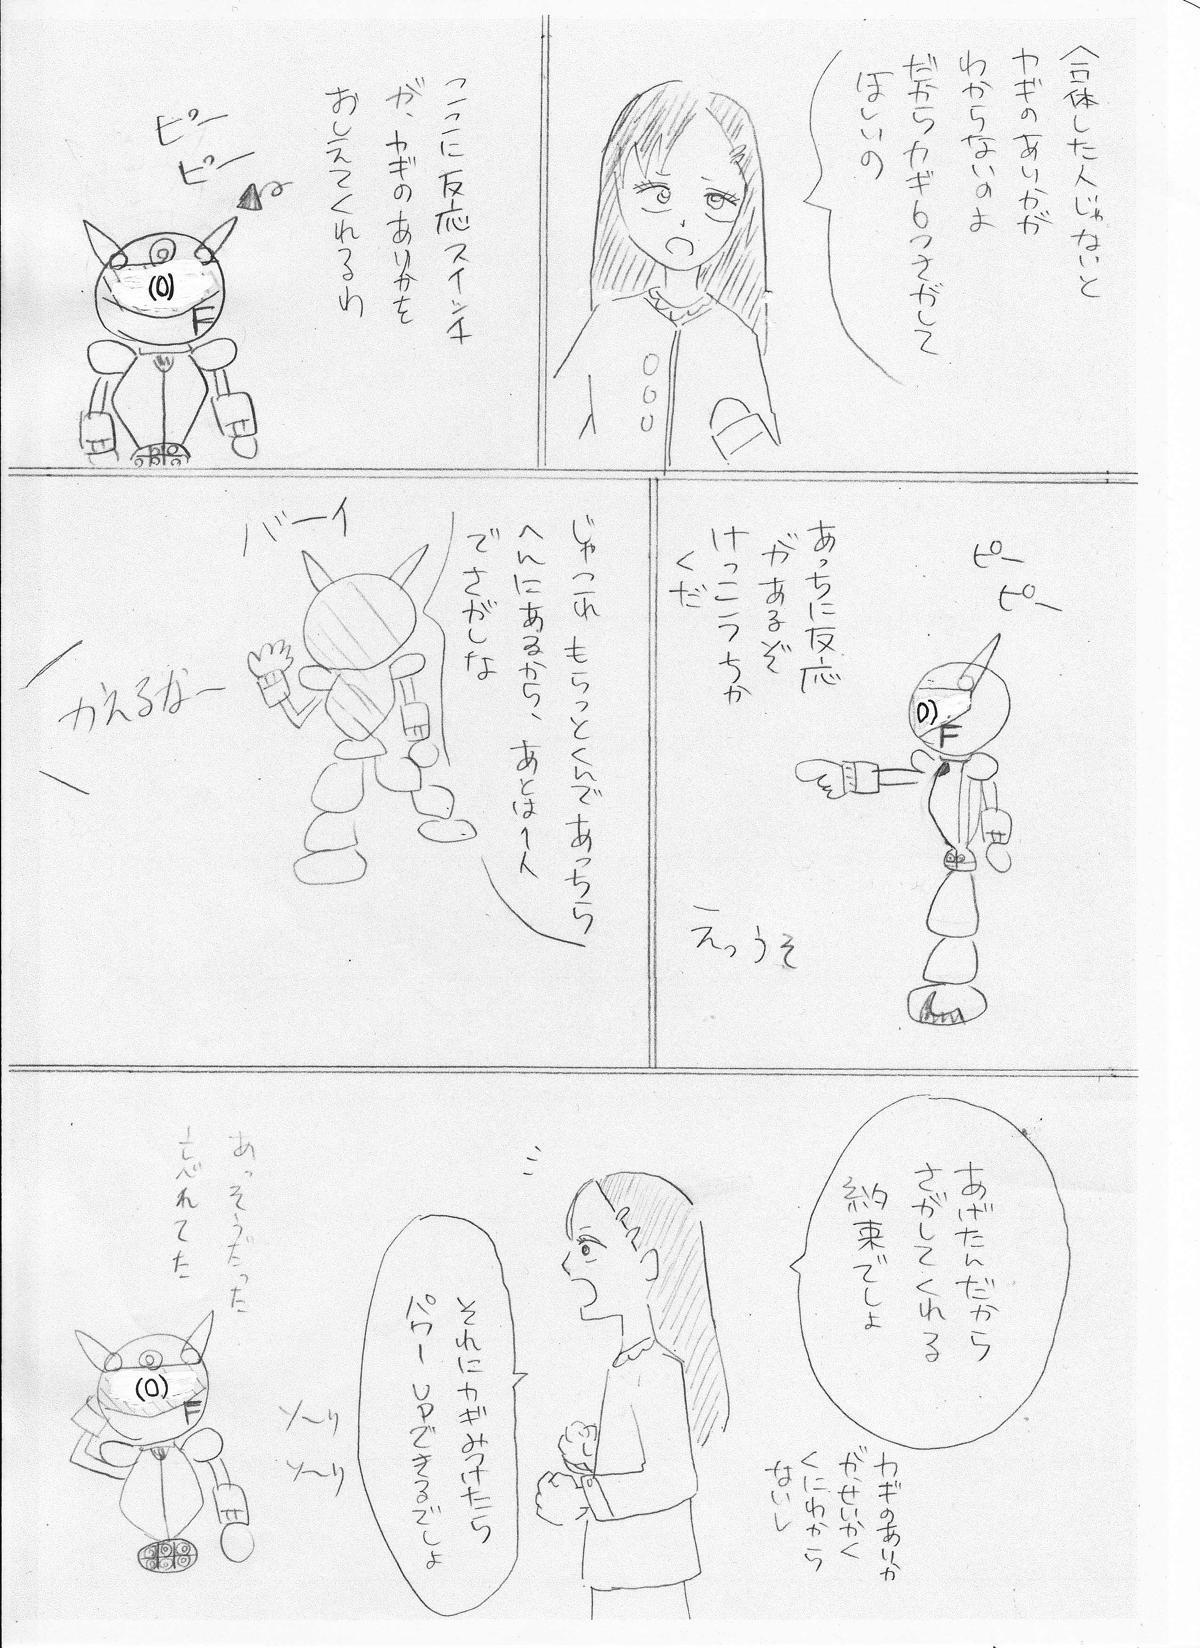 合体した人じゃないと
カギのありかが
わからないのよ
だからカギ6つさがして
ほしいの
ここに反応スイッチ
が、カギのありかを
おしえてくれるわ
ピー
ピー
F
ピー
ピー
あっちに反応
があるぞ
けっこうちか
くだ
F
えっうそ
じゃこれ もらっとくんであっちら
へんにあるから、あとは1人
でさがしな
バーイ
かえるなー
あげたんだから
さがしてくれる
約束でしょ
カギのありか
がせいかく
くにわから
ないし
それにカギみつけたら
パワーUPできるでしょ
ソ〜リ
ソ〜リ
あっそうだった
忘れてた
F